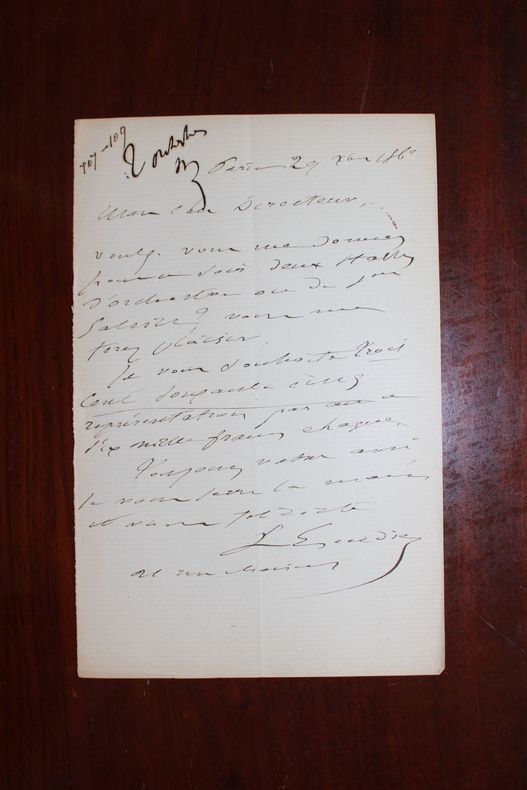 107-109
Paris 29 Xbre 186
Mon cher Directeur,
voulez vous me donner
pour ce soir deux stalles
d'orchestre ou de
Galerie? vous me
ferez plaisir.
Je vous souhaite trois
cent soixante cinq
représentations par an a
dix mille francs chaque.
Toujours votre ami
Je vous serre la main
et vous